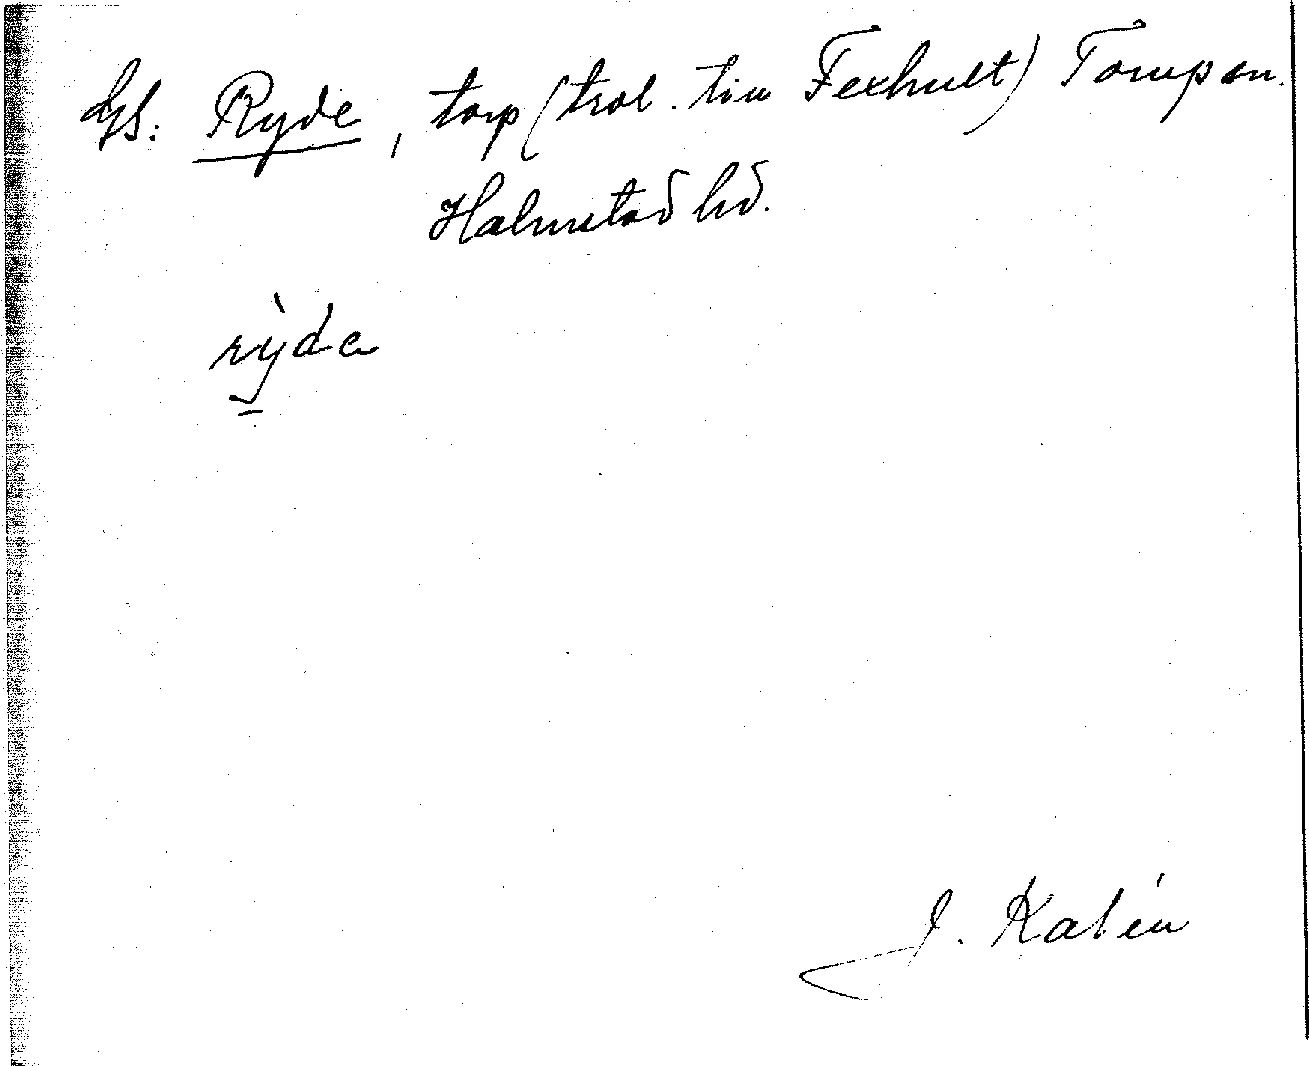 Gs. Ryde, torp (trol. till Fexhult) Torup sn.
Halmstad hd.
rỳdá
J. Kalén